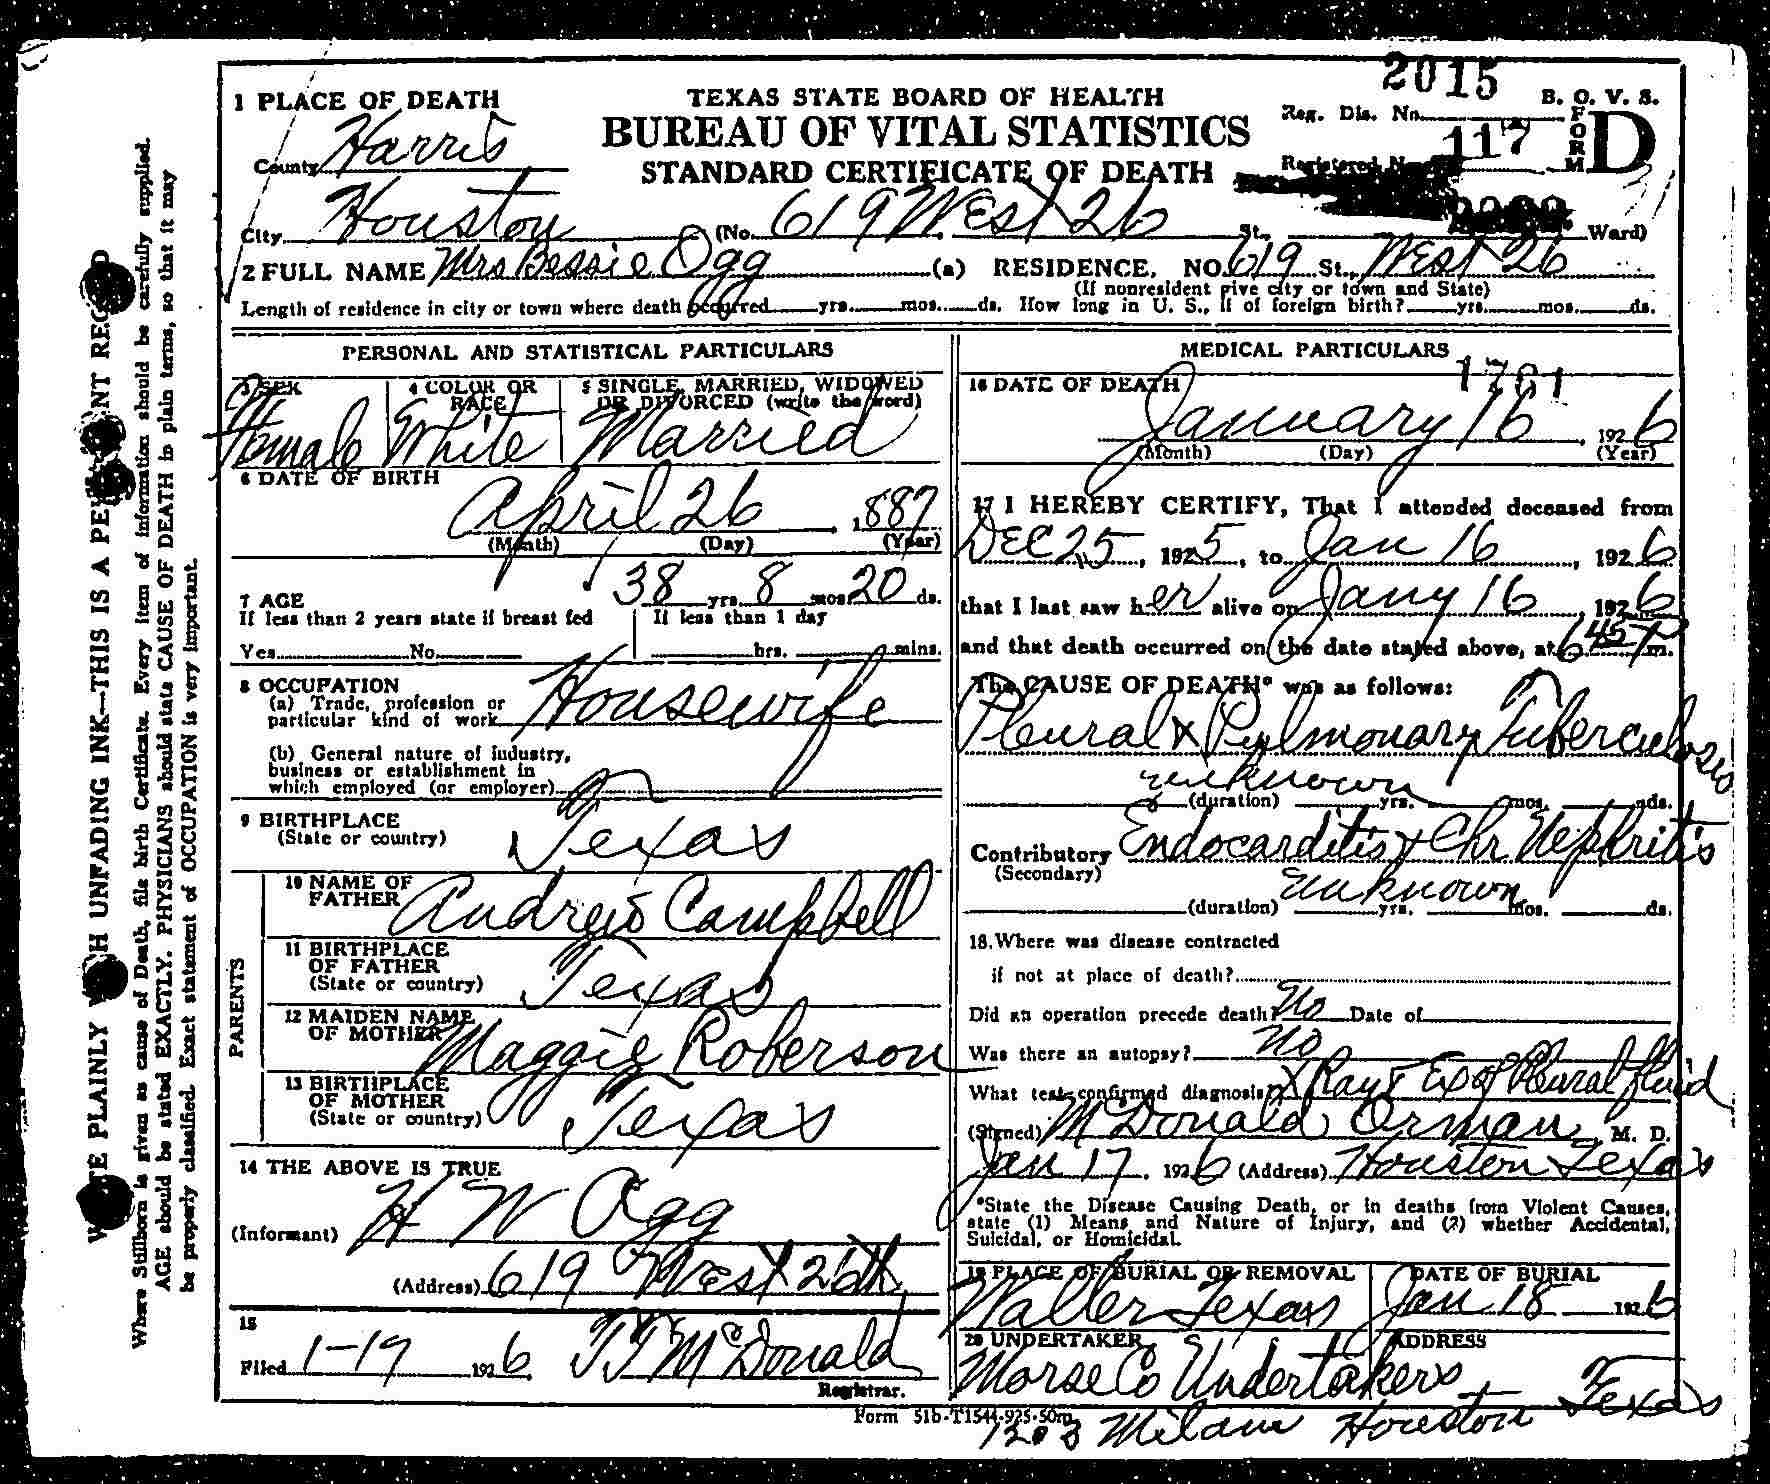 2015
1 PLACE OF DEATH
TEXAS STATE BOARD OF HEALTH
Reg. Dis. No.
B. O. V. S.
FORM D
BUREAU OF VITAL STATISTICS
117
County Harris
STANDARD CERTIFICATE OF DEATH
Registered No.
City Houston (No. 619 West 26 St., Ward)
2 FULL NAME Mrs Bessie Ogg (a) RESIDENCE. NO. 619 St., West 26
(If nonresident give city or town and State)
Length of residence in city or town where death occurred yrs. mos. ds. How long in U. S., if of foreign birth? yrs. mos. ds.
PERSONAL AND STATISTICAL PARTICULARS
3 SEX
Female
4 COLOR OR RACE
White
5 SINGLE, MARRIED, WIDOWED
OR DIVORCED (write the word)
Married
6 DATE OF BIRTH
April 26, 1887
(Month) (Day) (Year)
7 AGE 38 yrs. 8 mos. 20 ds.
If less than 2 years state if breast fed
If less than 1 day
Yes No
hrs. mins.
8 OCCUPATION
(a) Trade, profession or
particular kind of work Housewife
(b) General nature of industry,
business or establishment in
which employed (or employer)
9 BIRTHPLACE
(State or country) Texas
PARENTS
10 NAME OF
FATHER Andrew Campbell
11 BIRTHPLACE
OF FATHER
(State or country) Texas
12 MAIDEN NAME
OF MOTHER Maggie Roberson
13 BIRTHPLACE
OF MOTHER
(State or country) Texas
14 THE ABOVE IS TRUE
(Informant) H W Ogg
(Address) 619 West 26th
15
Filed 1-19 1926 T T McDonald
Registrar.
MEDICAL PARTICULARS
1761
16 DATE OF DEATH
January 16, 1926
(Month) (Day) (Year)
17 I HEREBY CERTIFY, That I attended deceased from
Dec 25, 1925, to Jan 16, 1926
that I last saw her alive on Jany 16, 1926
and that death occurred on the date stated above, at 6 45 P m.
The CAUSE OF DEATH* was as follows:
Pleural & Pulmonary Tuberculosis
unknown
(duration) yrs. mos. ds.
Contributory Endocarditis & Chr Nephritis
(Secondary)
unknown
(duration) yrs. mos. ds.
18. Where was disease contracted
if not at place of death?
Did an operation precede death? No Date of
Was there an autopsy? No
What test confirmed diagnosis? X Ray & Ex of Pleural fluid
(Signed) McDonald Orman M. D.
Jan 17, 1926 (Address) Houston Texas
*State the Disease Causing Death, or in deaths from Violent Causes,
state (1) Means and Nature of Injury, and (2) whether Accidental,
Suicidal, or Homicidal.
19 PLACE OF BURIAL OR REMOVAL
Waller Texas
DATE OF BURIAL
Jan 18 1926
20 UNDERTAKER
Morse Co Undertakers
ADDRESS
1203 Milam Houston Texas
Form 51b-T1544-925-50m
WRITE PLAINLY WITH UNFADING INK—THIS IS A PERMANENT RECORD
Where Stillborn is given as cause of Death, file birth Certificate. Every item of information should be carefully supplied.
AGE should be stated EXACTLY. PHYSICIANS should state CAUSE OF DEATH in plain terms, so that it may
be properly classified. Exact statement of OCCUPATION is very important.